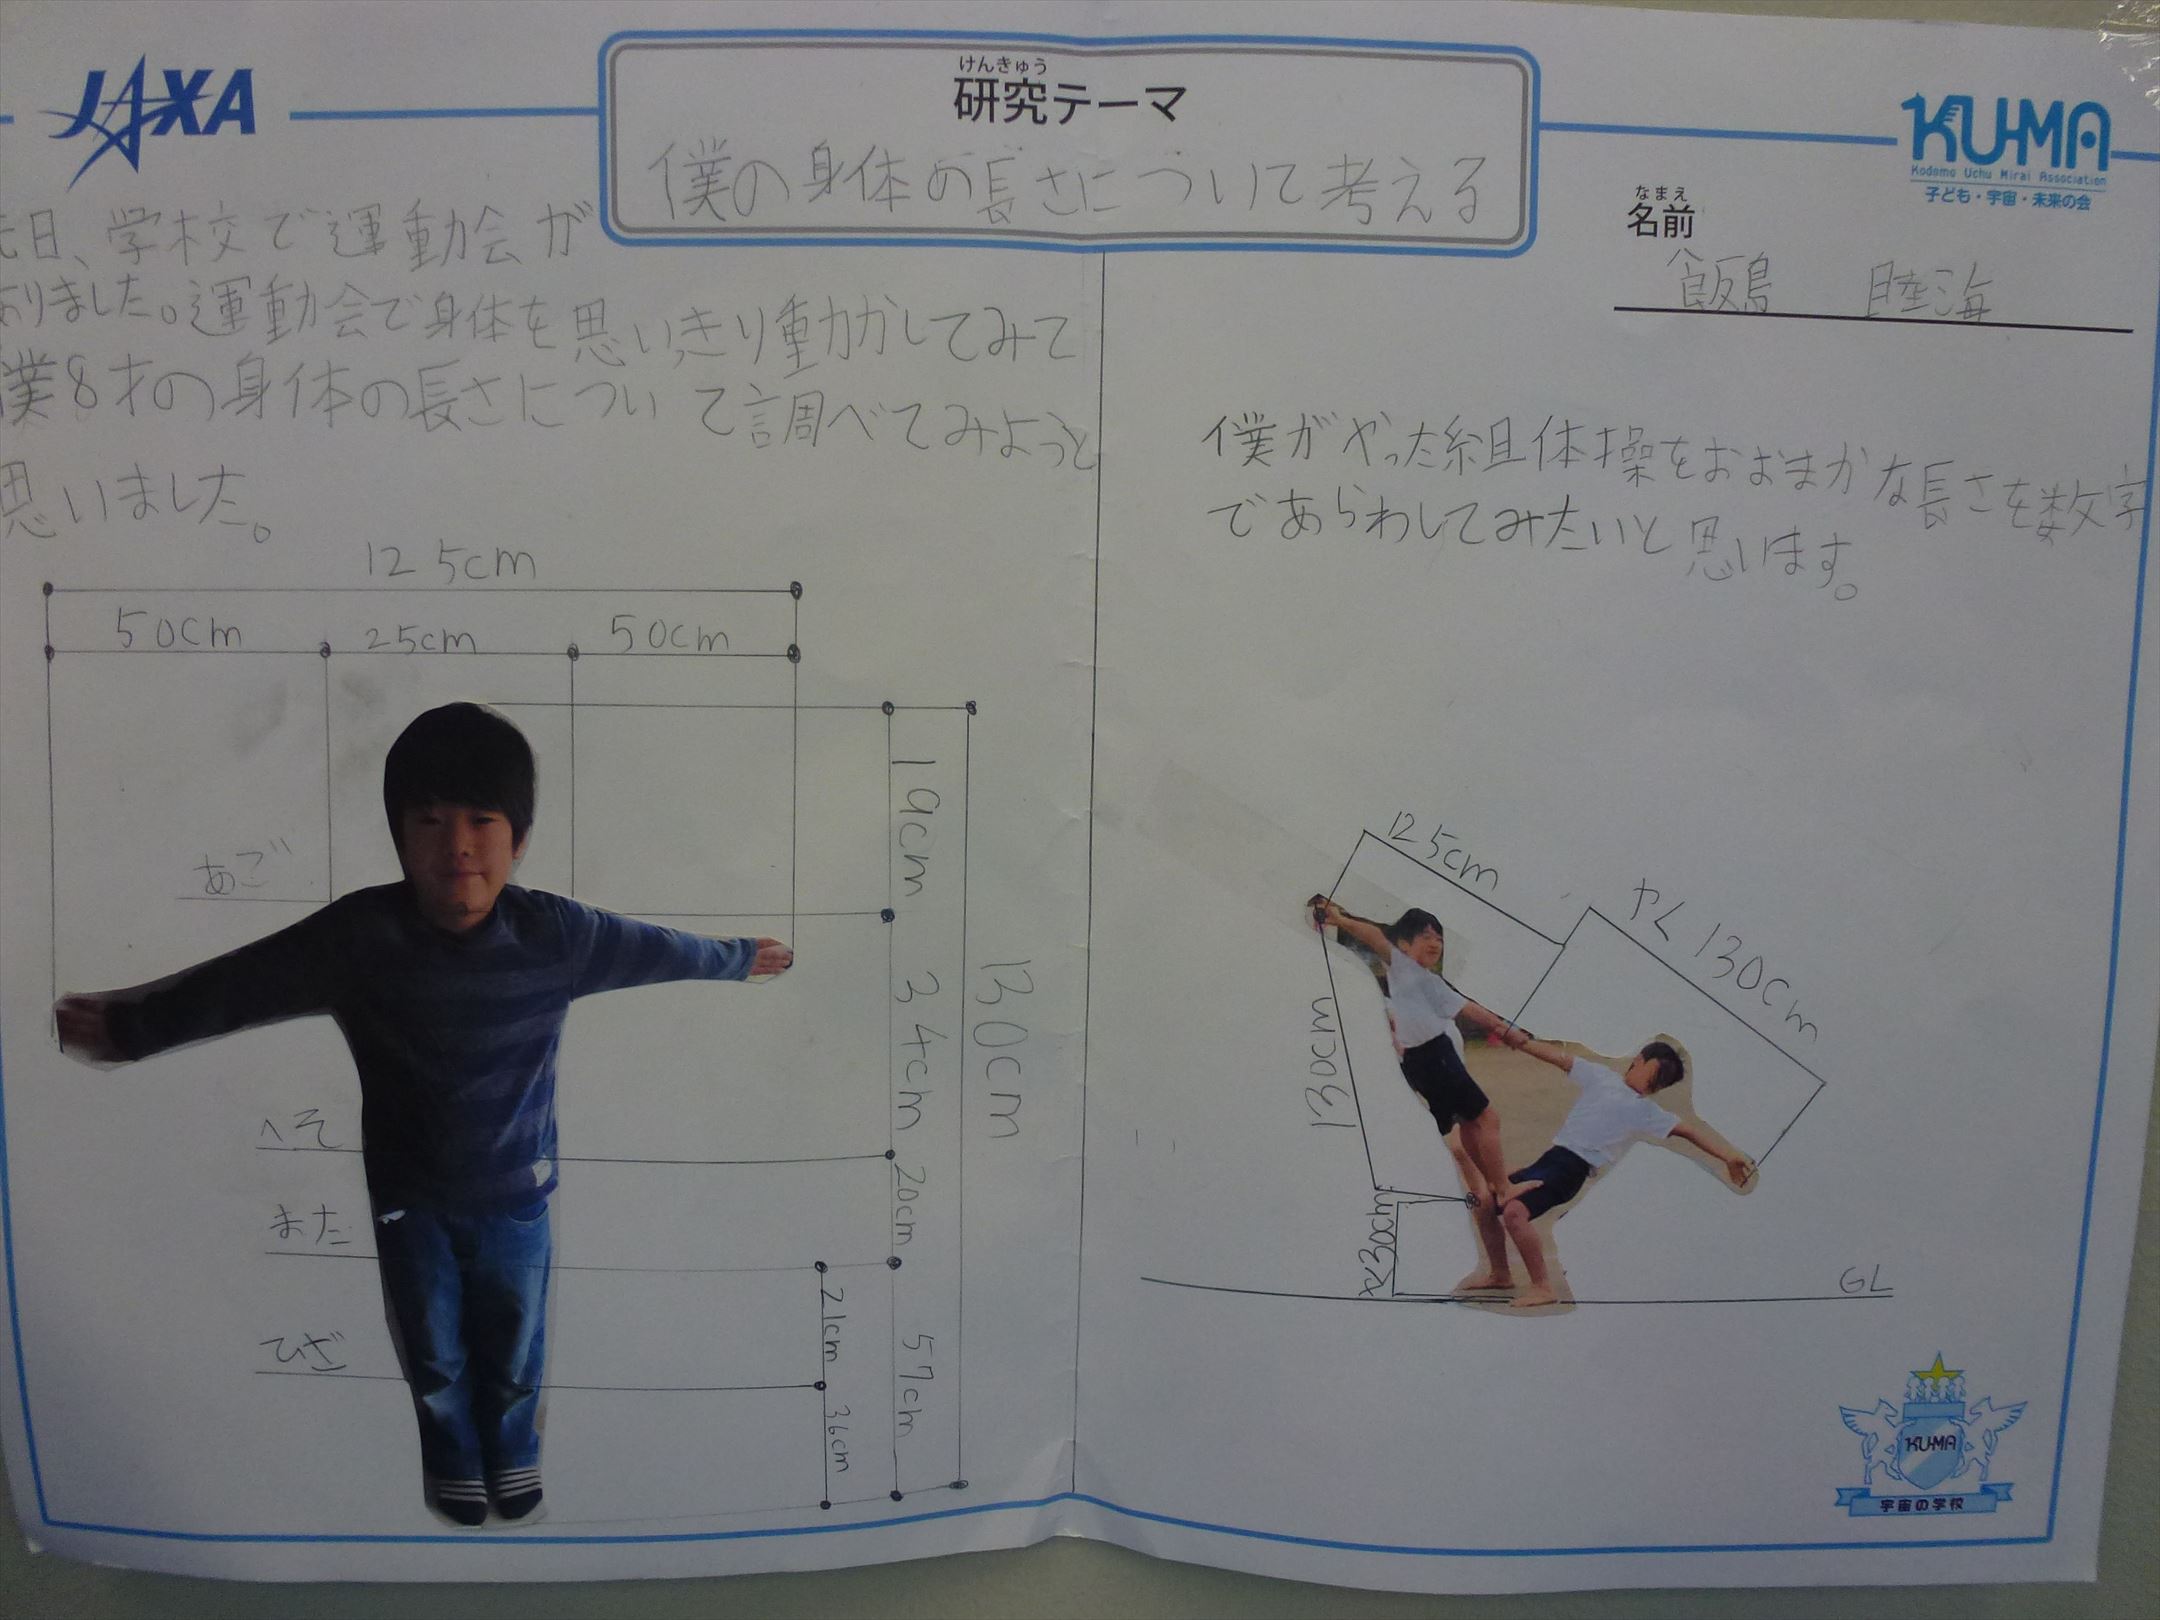 JAXA
けんきゅう
研究テーマ
僕の身体の長さについて考える
KU-MA
Kodomo Uchu Mirai Association
子ども・宇宙・未来の会
なまえ
名前
飯島 睦海
先日、学校で運動会が
ありました。運動会で身体を思いっきり動かしてみて
僕8才の身体の長さについて調べてみようと
思いました。
125cm
50cm 25cm 50cm
あご
へそ
また
ひざ
19cm
34cm
20cm
57cm
21cm
36cm
130cm
僕がやった組体操をおおまかな長さを数字
であらわしてみたいと思います。
125cm
やく130cm
130cm
30cm
GL
KU-MA
宇宙の学校